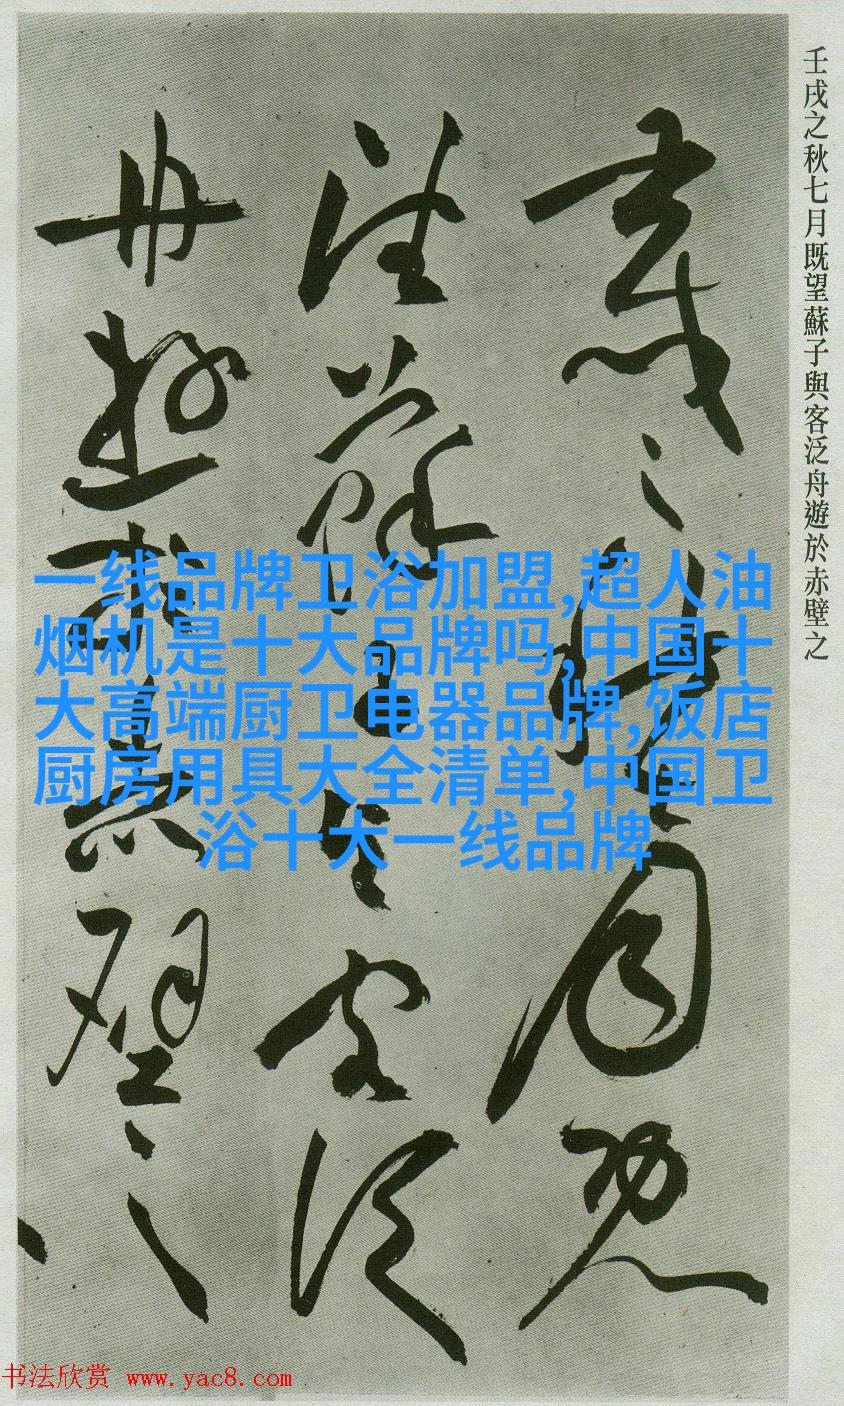 壬戌之秋七月既望蘇子與客泛舟遊於赤壁之
壬戌之秋七月既
望蘇子與客泛
舟遊於赤壁之
一线品牌卫浴加盟,超人油
烟机是十大品牌吗,中国十
大高端厨卫电器品牌,饭店
厨房用具大全清单,中国卫
浴十大一线品牌
书法欣赏 www.yac8.com